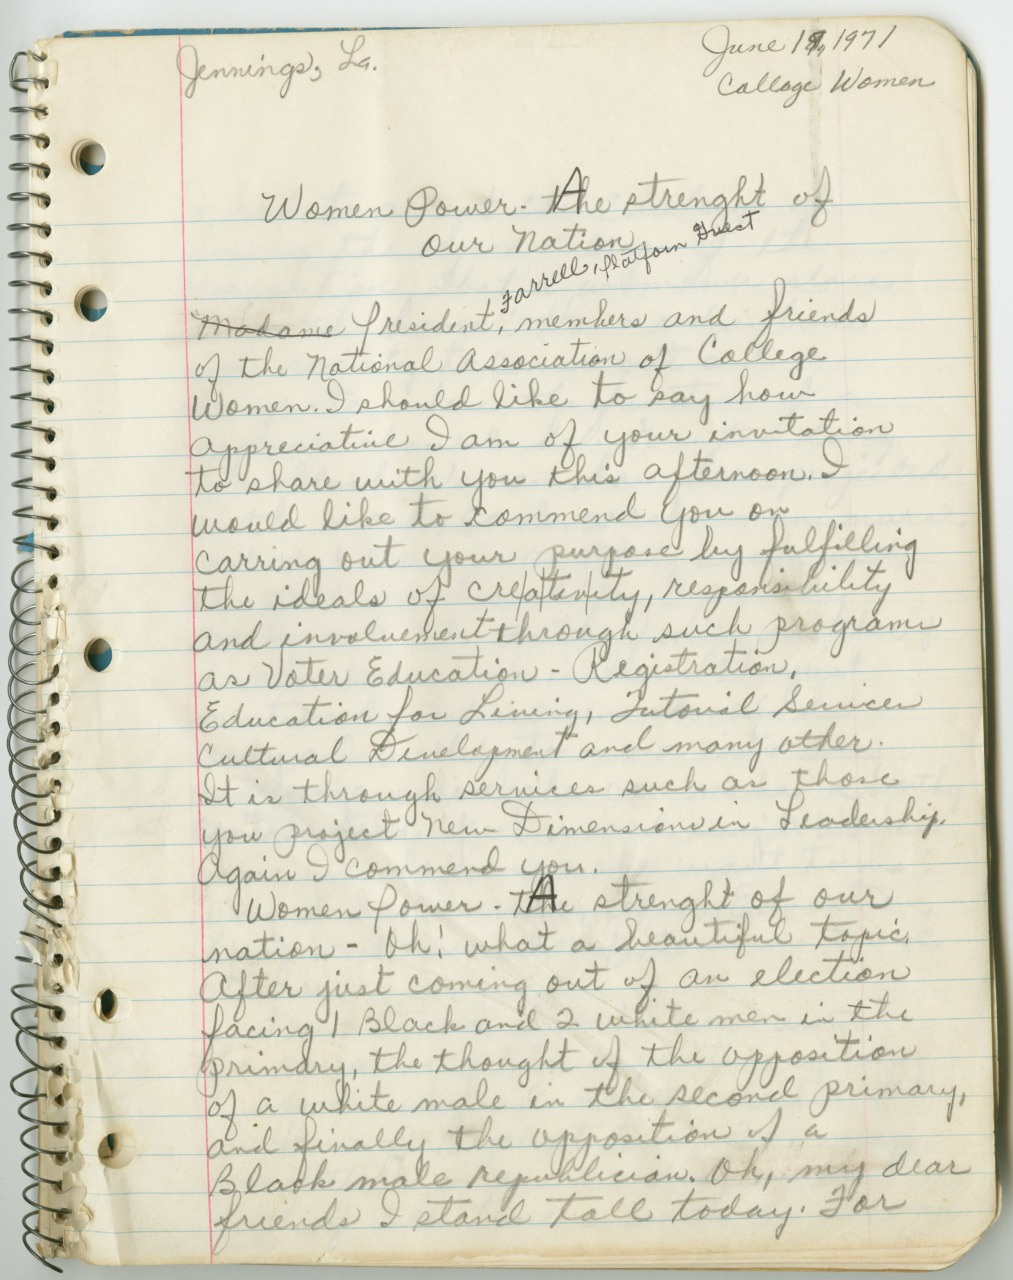 Jennings, La.
June 19, 1971
College Women
Women Power - A strenght of
our Nation
Farrell, Platform Guest
Madame President, members and friends
of the National Association of College
Women. I should like to say how
appreciative I am of your invitation
to share with you this afternoon. I
would like to commend you on
carring out your purpose by fulfilling
the ideals of creativity, responsibility
and involvement through such programs
as Voter Education - Registration,
Education for Living, Tutorial Services
Cultural Development and many other.
It is through services such as those
you project New Dimensions in Leadership.
Again I commend you.
Women Power - A strenght of our
nation - Oh! what a beautiful topic.
After just coming out of an election
facing 1 Black and 2 white men in the
primary, the thought of the opposition
of a white male in the second primary,
and finally the opposition of a
Black male republician. Oh, my dear
friends I stand tall today. For